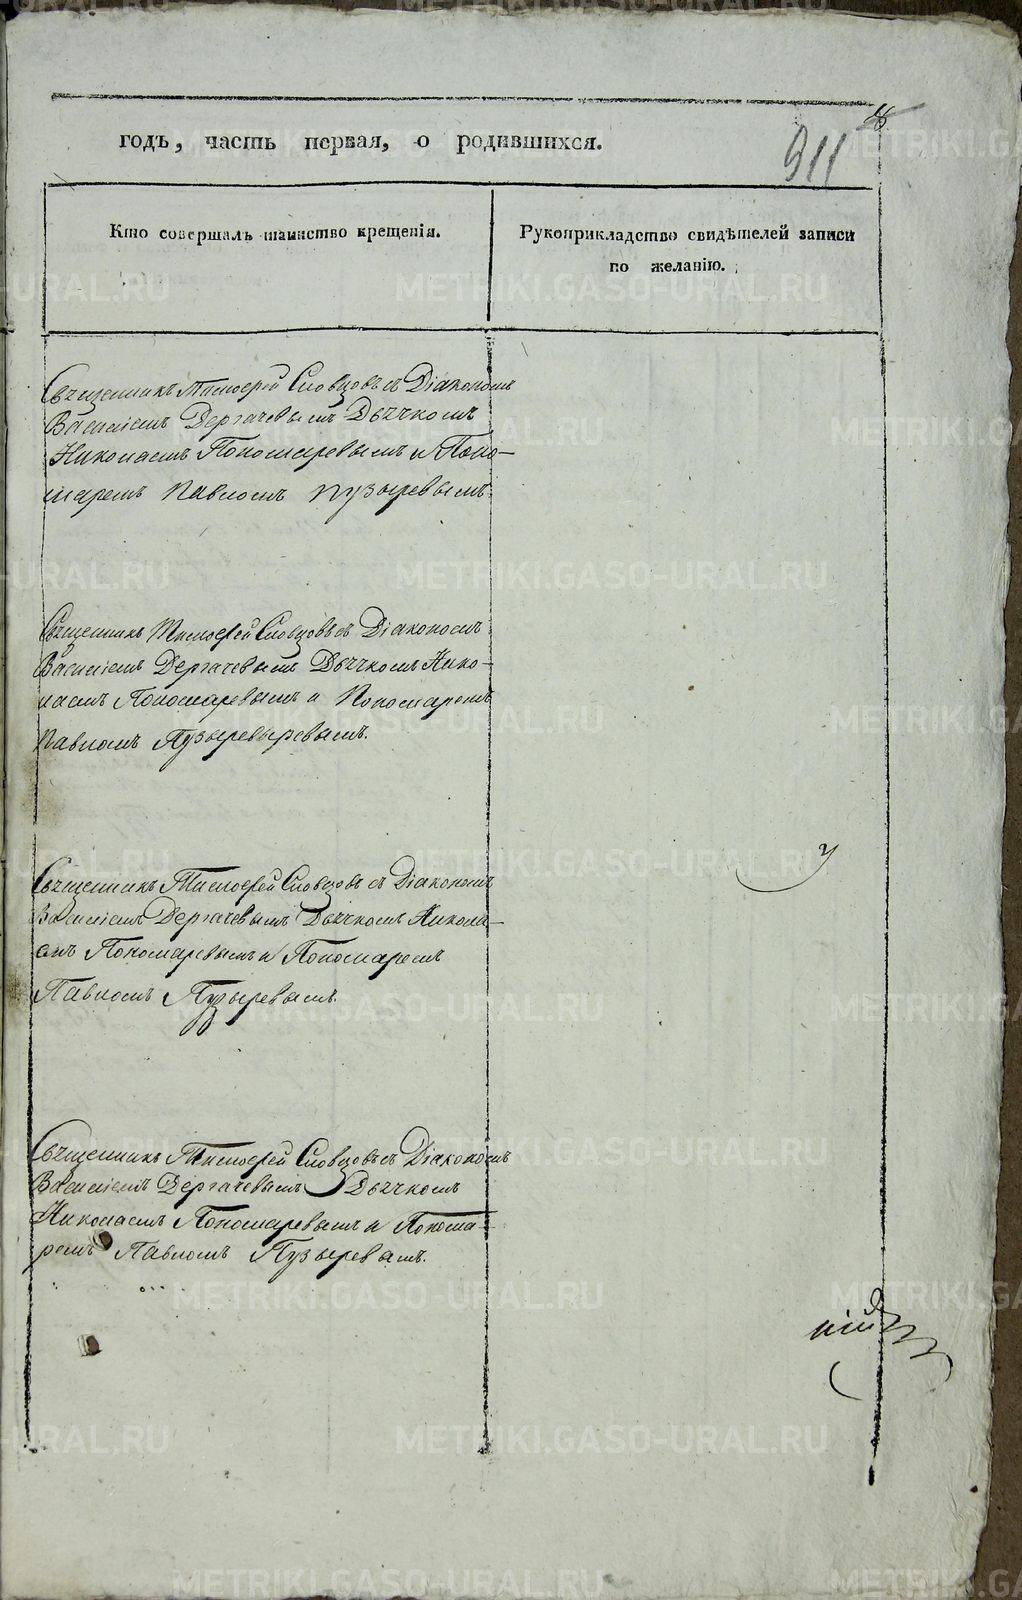 годъ, часть первая, о родившихся.
911
Кто совершалъ таинство крещенія.
Рукоприкладство свидѣтелей записи
по желанію.
Священникъ Тимофей Словцовъ съ Діакономъ
Василіемъ Дергачевымъ Дьячкомъ
Николаемъ Пономаревымъ и Поно-
маремъ Павломъ Пузыревымъ.
Священникъ Тимофей Словцовъ съ Діакономъ
Василіемъ Дергачевымъ Дьячкомъ Нико-
лаемъ Пономаревымъ и Пономаремъ
Павломъ Пузыревыревымъ.
Священникъ Тимофей Словцовъ съ Діакономъ
Василіемъ Дергачевымъ Дьячкомъ Никола-
емъ Пономаревымъ и Пономаремъ
Павломъ Пузыревымъ.
Священникъ Тимофей Словцовъ съ Діакономъ
Василіемъ Дергачевымъ Дьячкомъ
Николаемъ Пономаревымъ и Понома-
ремъ Павломъ Пузыревымъ.
METRIKI.GASO-URAL.RU